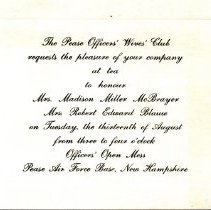 The Pease Officers' Wives' Club
requests the pleasure of your company
at tea
to honour
Mrs. Madison Miller McBrayer
Mrs. Robert Edward Blaine
on Tuesday, the thirteenth of August
from three to four o'clock
Officers' Open Mess
Pease Air Force Base, New Hampshire